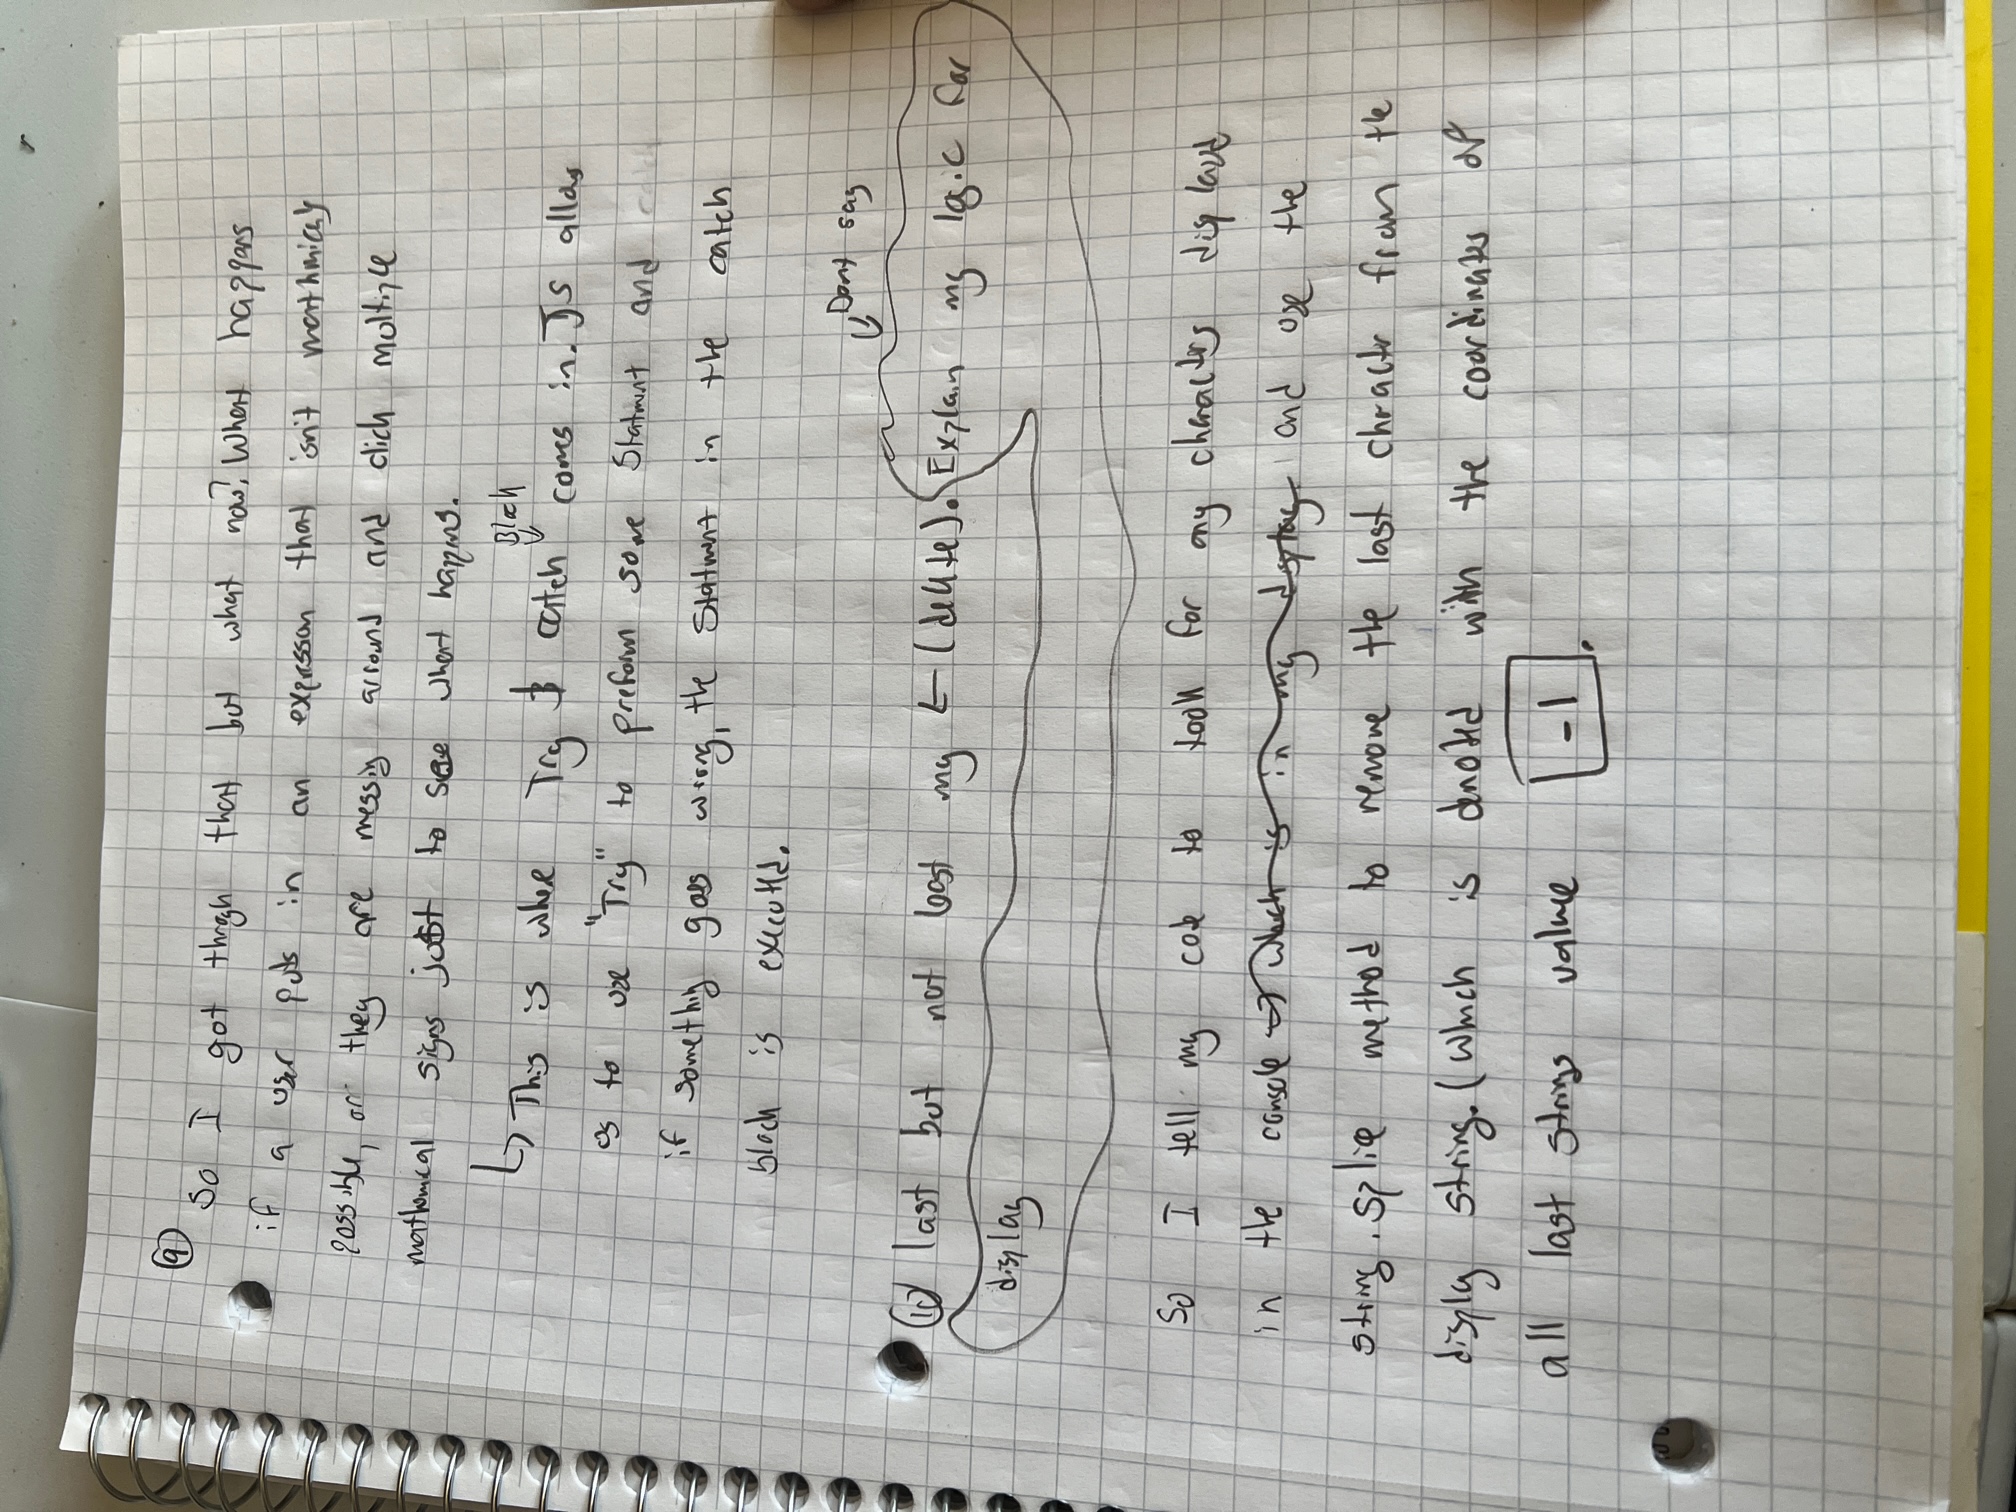 9
So I got throgh that but what now? What happens
if a user puts in an expresson that isn't mathmicaly
possible, or they are messig arround and click multiple
mathemical signs just to see what happns.
Block
↳ This is where Try & catch comes in. JS allows
us to use "Try" to preform some Statment and catch
if somethig goes wrong, the Statment in the catch
block is executed.
Dont say
10 last but not least my ← (delete). Explain my logic for
display
So I tell my code to look for any characters displayed
in the console → which is in my display and use the
string.splice method to remove the last chracter from the
disply string. (which is denoted with the coordinates of
all last strings value -1.